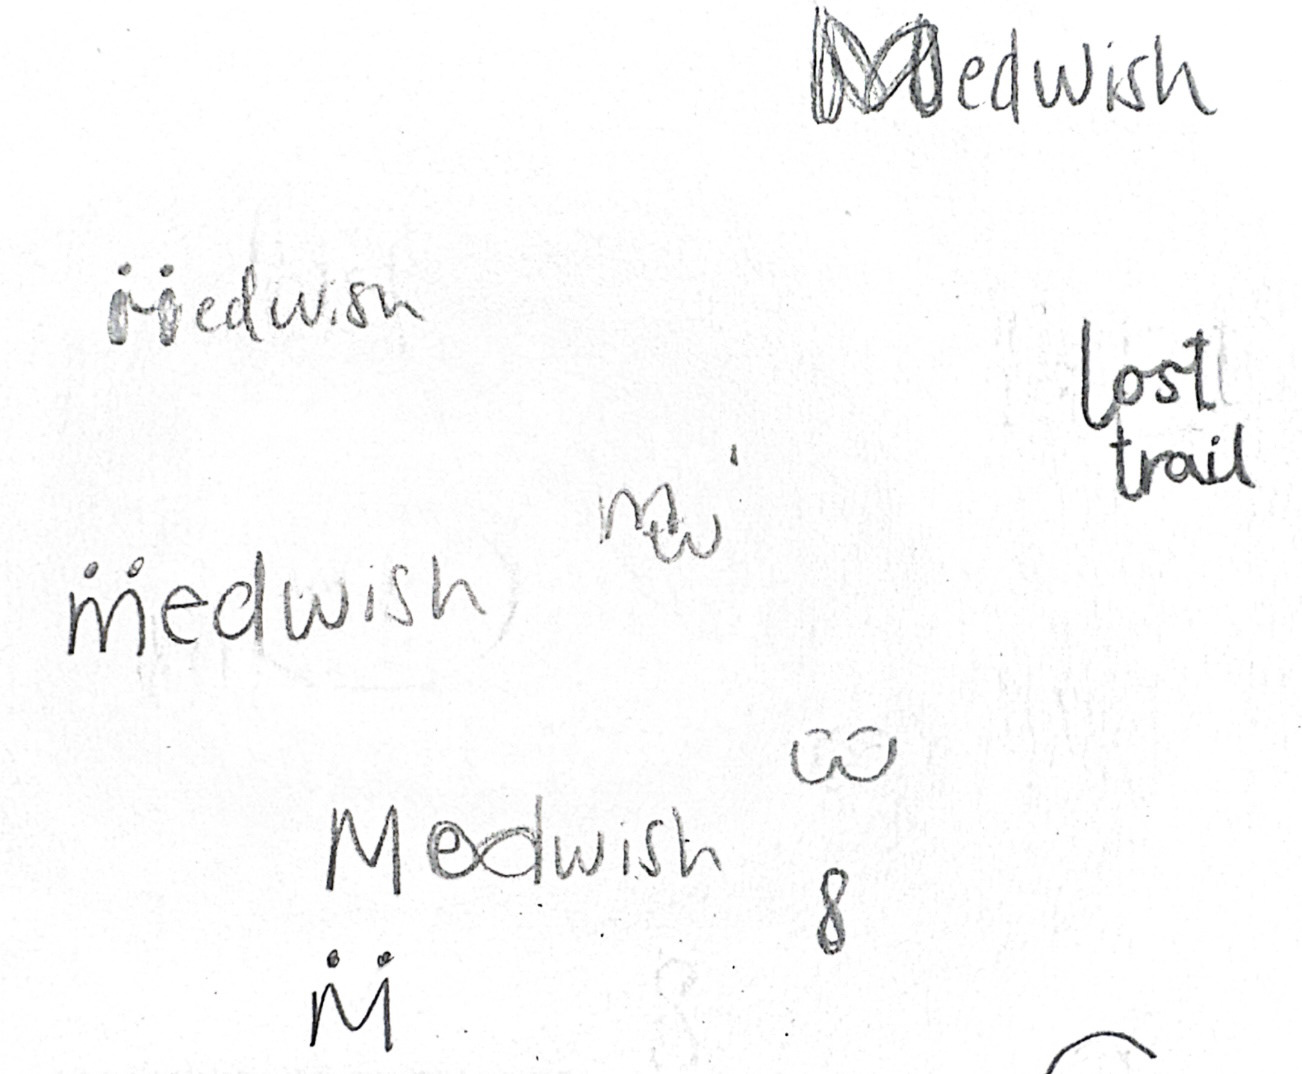 Medwish
Medwish
lost
trail
mw
Medwish
Medwish
8
M̈